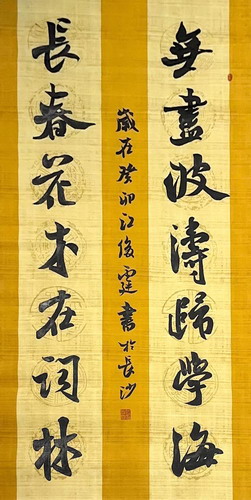 無盡波濤歸學海
長春花木在詞林
歲在癸卯江俊霆書於長沙